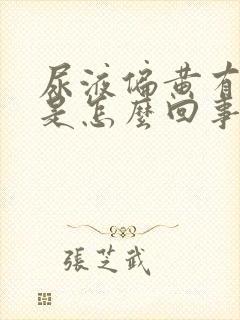 尿液偏黄有
是怎麼回事
張芝武